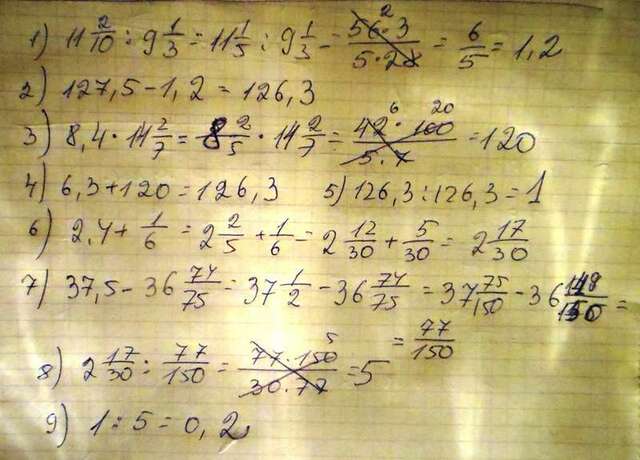 1) 11 2/10 : 9 1/3 = 11 1/5 : 9 1/3 = 56 2 · 3 / 5 · 28 = 6/5 = 1,2
2) 127,5 - 1,2 = 126,3
3) 8,4 · 14 2/7 = 8 2/5 · 14 2/7 = 42 6 · 100 20 / 5 · 7 = 120
4) 6,3 + 120 = 126,3 5) 126,3 : 126,3 = 1
6) 2,4 + 1/6 = 2 2/5 + 1/6 = 2 12/30 + 5/30 = 2 17/30
7) 37,5 - 36 74/75 = 37 1/2 - 36 74/75 = 37 75/150 - 36 148/150 =
= 77/150
8) 2 17/30 : 77/150 = 77 · 150 5 / 30 · 77 = 5
9) 1 : 5 = 0,2